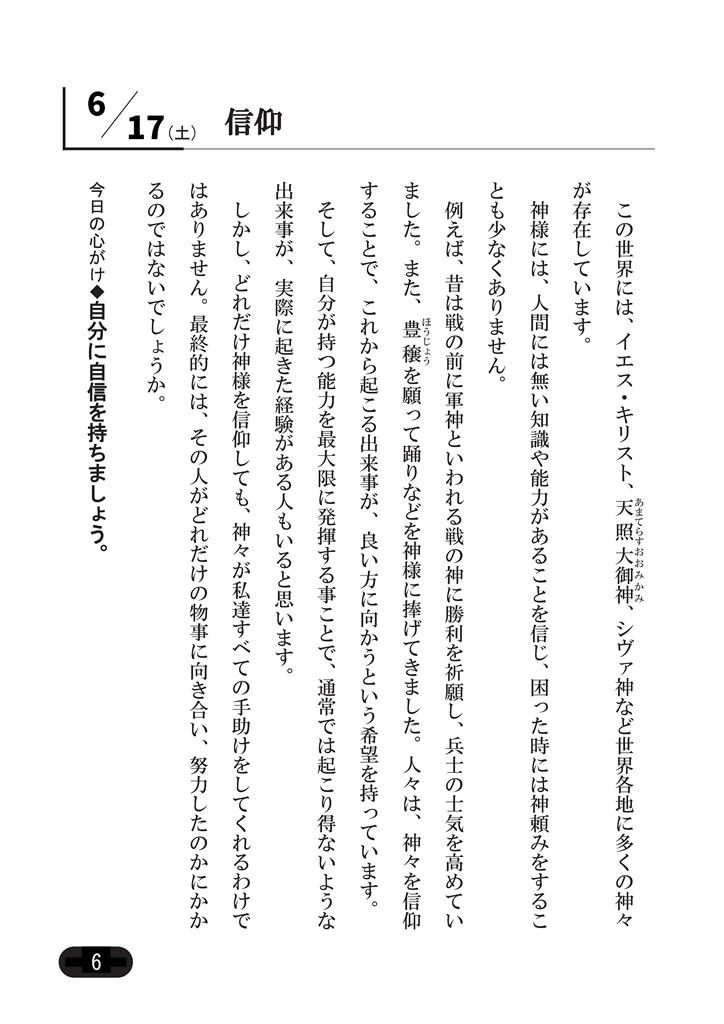 6/17(土) 信仰
この世界には、イエス・キリスト、天照大御神、シヴァ神など世界各地に多くの神々
あまてらすおおみかみ
が存在しています。
神様には、人間には無い知識や能力があることを信じ、困った時には神頼みをするこ
とも少なくありません。
例えば、昔は戦の前に軍神といわれる戦の神に勝利を祈願し、兵士の士気を高めてい
ました。また、豊穣を願って踊りなどを神様に捧げてきました。人々は、神々を信仰
ほうじょう
することで、これから起こる出来事が、良い方に向かうという希望を持っています。
そして、自分が持つ能力を最大限に発揮する事ことで、通常では起こり得ないような
出来事が、実際に起きた経験がある人もいると思います。
しかし、どれだけ神様を信仰しても、神々が私達すべての手助けをしてくれるわけで
はありません。最終的には、その人がどれだけの物事に向き合い、努力したのかにかか
るのではないでしょうか。
今日の心がけ◆自分に自信を持ちましょう。
6